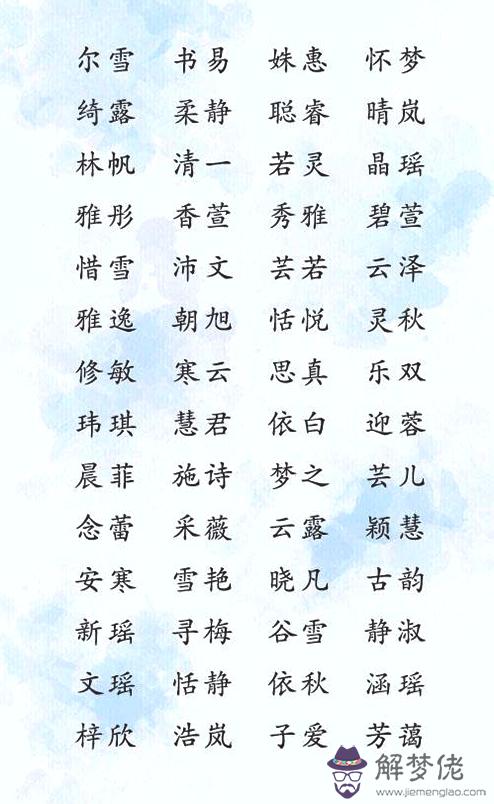 尔雪 书易 姝惠 怀梦
绮露 柔静 聪睿 晴岚
林帆 清一 若灵 晶瑶
雅彤 香萱 秀雅 碧萱
惜雪 沛文 芸若 云泽
雅逸 朝旭 恬悦 灵秋
修敏 寒云 思真 乐双
玮琪 慧君 依白 迎蓉
晨菲 施诗 梦之 芸儿
念蕾 采薇 云露 颖慧
安寒 雪艳 晓凡 古韵
新瑶 寻梅 谷雪 静淑
文瑶 恬静 依秋 涵瑶
梓欣 浩岚 子爱 芳蔼
解梦佬
www.jiemenglao.com